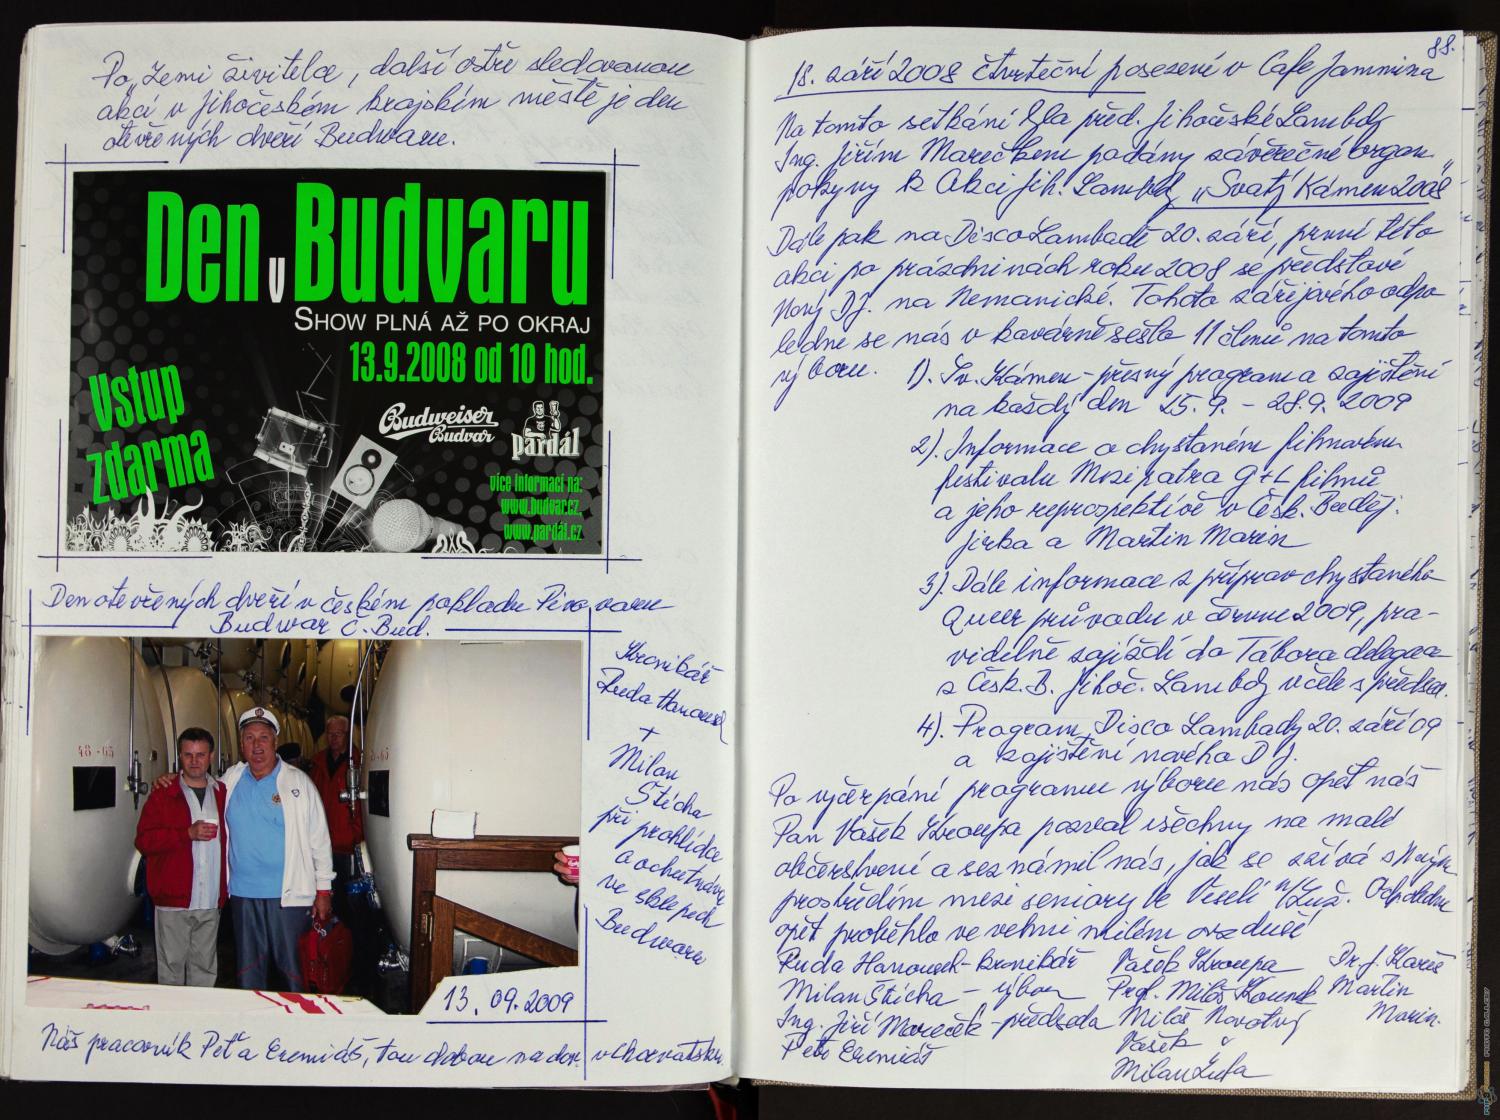 Po „Zemi živitelce, další ostře sledovanou
akcí v jihočeském krajském městě je den
otevřených dveří Budwaru.
Den v Budvaru
SHOW PLNÁ AŽ PO OKRAJ
13.9.2008 od 10 hod.
Vstup
zdarma
Budweiser
Budvar
pardál
více informací na:
www.budvar.cz,
www.pardál.cz
Den otevřených dveří v českém pokladu Pivovaru
Budwar Č. Bud.
48-65
Kronikář
Ruda Hanousek
+
Milan
Štícha
při prohlídce
a ochutnávce
ve sklepech
Budwaru
13.09.2009
Náš pracovník Peťa Eremiáš, tou dobou na dov. v Chorvatsku
88.
18. září 2008 čtvrteční posezení v Cafe Jamnina
Na tomto setkání byla před. Jihočeské Lambdy
Ing. Jiřím Marečkem podány závěrečné organ.
pokyny k akci jih. Lambdy „Svatý Kámen 2008"
Dále pak na Disco Lambadě 20. září, první této
akci po prázdninách roku 2008 se představí
Nový DJ. na Nemanické. Tohoto zářijového odpo
ledne se nás v kavárně sešlo 11 členů na tomto
výboru.
1). Sv. Kámen - přesný program a zajištění
na každý den 25.9. - 28.9. 2009
2). Informace o chystaném filmovém
festivalu Mezipatra G+L filmů
a jeho reprospektivě v Česk. Buděj.
Jirka a Martin Maren
3). Dále informace z příprav chystaného
Queer průvodu v červnu 2009, pra-
videlně zajíždí do Tábora delegace
z Česk. B. Jihoč. Lambdy v čele s předsed.
4). Program Disco Lambady 20. září 09
a zajištění nového DJ.
Po vyčerpání programu výboru nás opět nás
Pan Vašek Kroupa pozval všechny na malé
občerstvení a seznámil nás, jak se zžívá s Novým
prostředím mezi seniory ve Veselí n/Luž. Odpoledne
opět proběhlo ve velmi milém ovzduší
Ruda Hanousek - kronikář Vašek Kroupa Dr. J. Kareš
Milan Štícha - výbor Prof. Miloš Kounek Martin
Ing. Jiří Mareček - předseda Miloš Novotný Marin.
Petr Eremiáš Vašek
Milan Lufa